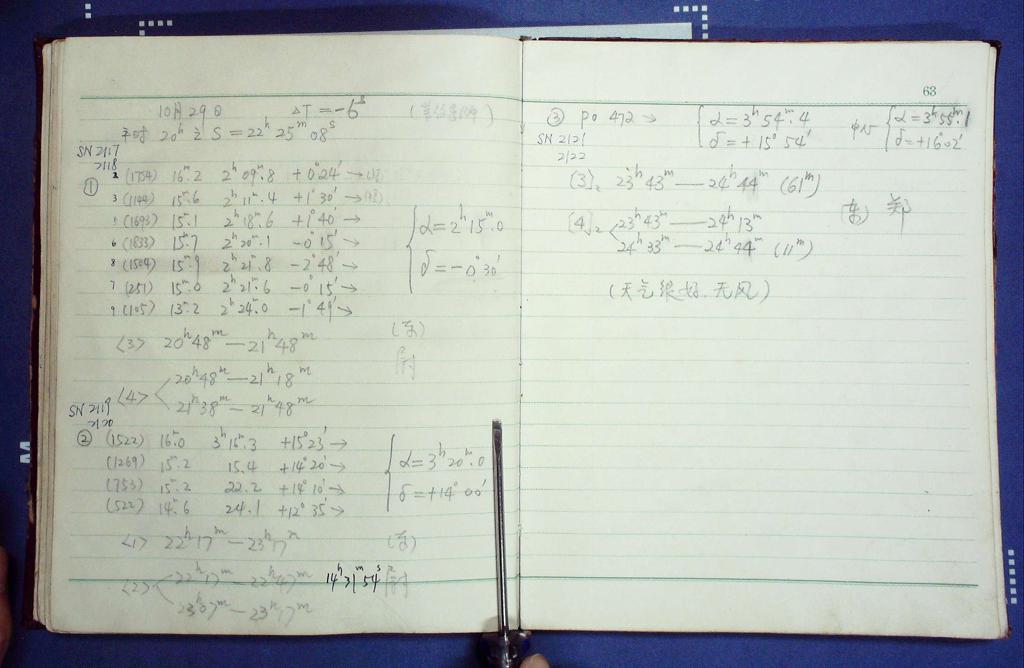 10月29日 ΔT=-6ˢ
平时 20ʰ之 S=22ʰ25ᵐ08ˢ
SN 2117
2118
①
2 (1754) 16ᵐ.2 2ʰ09ᵐ.8 +0°24′→
3 (1144) 15ᵐ.6 2ʰ11ᵐ.4 +1°30′→
5 (1693) 15ᵐ.1 2ʰ18ᵐ.6 +1°40′→
6 (1833) 15ᵐ.7 2ʰ20ᵐ.1 -0°15′→
8 (1504) 15ᵐ.9 2ʰ21ᵐ.8 -2°48′→
7 (251) 15ᵐ.0 2ʰ21ᵐ.6 -0°15′→
9 (105) 13ᵐ.2 2ʰ24ᵐ.0 -1°49′→
α=2ʰ15ᵐ.0
δ=-0°30′
<3> 20ʰ48ᵐ—21ʰ48ᵐ
<4> 20ʰ48ᵐ—21ʰ18ᵐ
21ʰ38ᵐ—21ʰ48ᵐ
SN 2119
2120
② (1522) 16ᵐ.0 3ʰ16ᵐ.3 +15°23′→
(1269) 15ᵐ.2 15.4 +14°20′→
(753) 15ᵐ.2 22.2 +14°10′→
(522) 14ᵐ.6 24.1 +12°35′→
α=3ʰ20ᵐ.0
δ=+14°00′
<1> 22ʰ17ᵐ—23ʰ17ᵐ
<2> 22ʰ17ᵐ—22ʰ47ᵐ 14ʰ31ᵐ54ˢ
23ʰ07ᵐ—23ʰ17ᵐ
63
③ PO 472→ α=3ʰ54ᵐ.4 中心 α=3ʰ55ᵐ.1
δ=+15°54′ δ=+16°02′
SN 2121
2122
[3]₂ 23ʰ43ᵐ—24ʰ44ᵐ (61ᵐ)
[4]₂ 23ʰ43ᵐ—24ʰ13ᵐ
24ʰ33ᵐ—24ʰ44ᵐ (11ᵐ)
郑
(天气很好.无风)